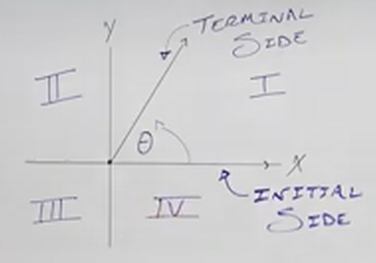 y
TERMINAL
SIDE
II
I
θ
X
III
IV
INITIAL
SIDE